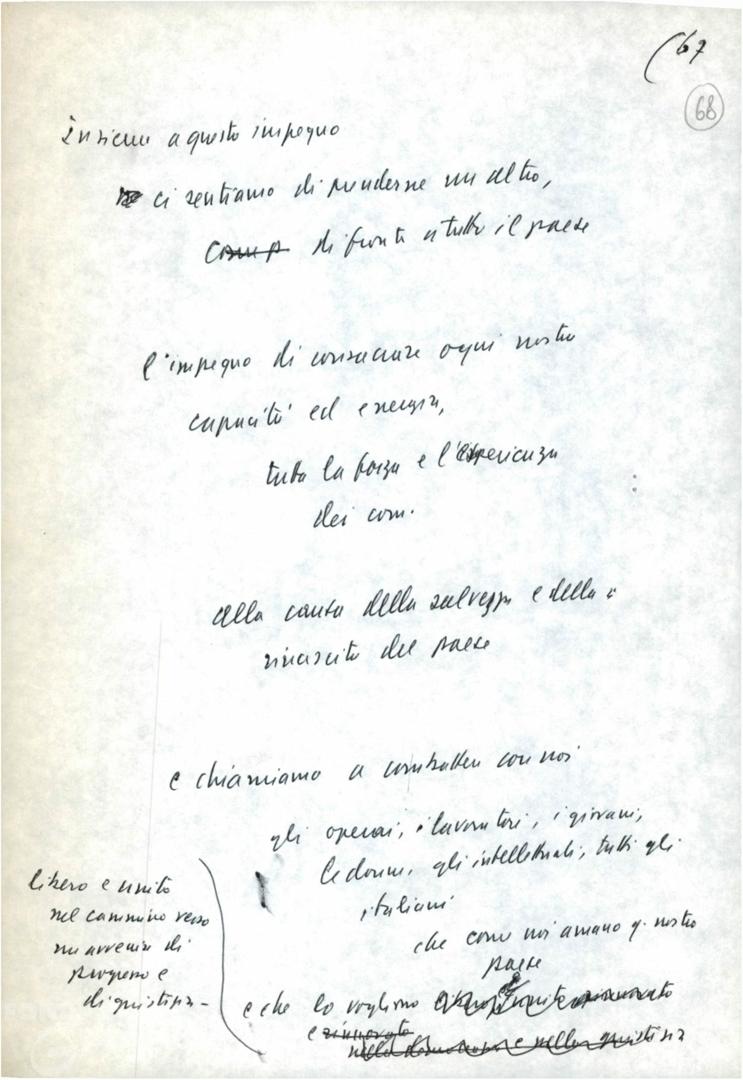 (67
68
Insieme a questo impegno
ci sentiamo di prenderne un altro,
di fronte a tutto il paese
l'impegno di consacrare ogni nostra
capacità ed energia,
tutta la forza e l'esperienza
dei com.
alla causa della salvezza e della
rinascita del paese
e chiamiamo a combattere con noi
gli operai, i lavoratori, i giovani,
le donne, gli intellettuali, tutti gli
italiani
che come noi amano q. nostro
paese
e che lo vogliono
e rinnovato
nella democrazia e nella giustizia
libero e unito
nel cammino verso
un avvenire di
progresso e
di giustizia -